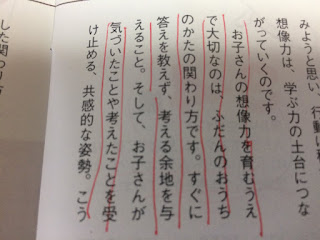 みようと思い、行動に
想像力は、学ぶ力の土台につな
がっていくのです。
お子さんの想像力を育むうえ
で大切なのは、ふだんのおうち
のかたの関わり方です。すぐに
答えを教えず、考える余地を与
えること。そして、お子さんが
気づいたことや考えたことを受
け止める、共感的な姿勢。こう
した関わり方